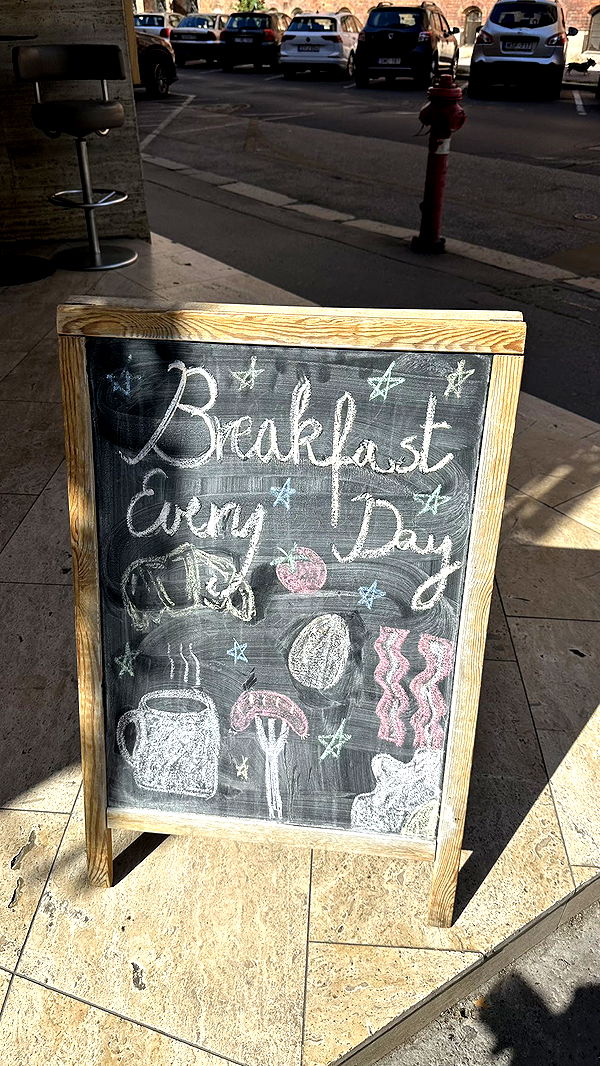 Breakfast
Every Day